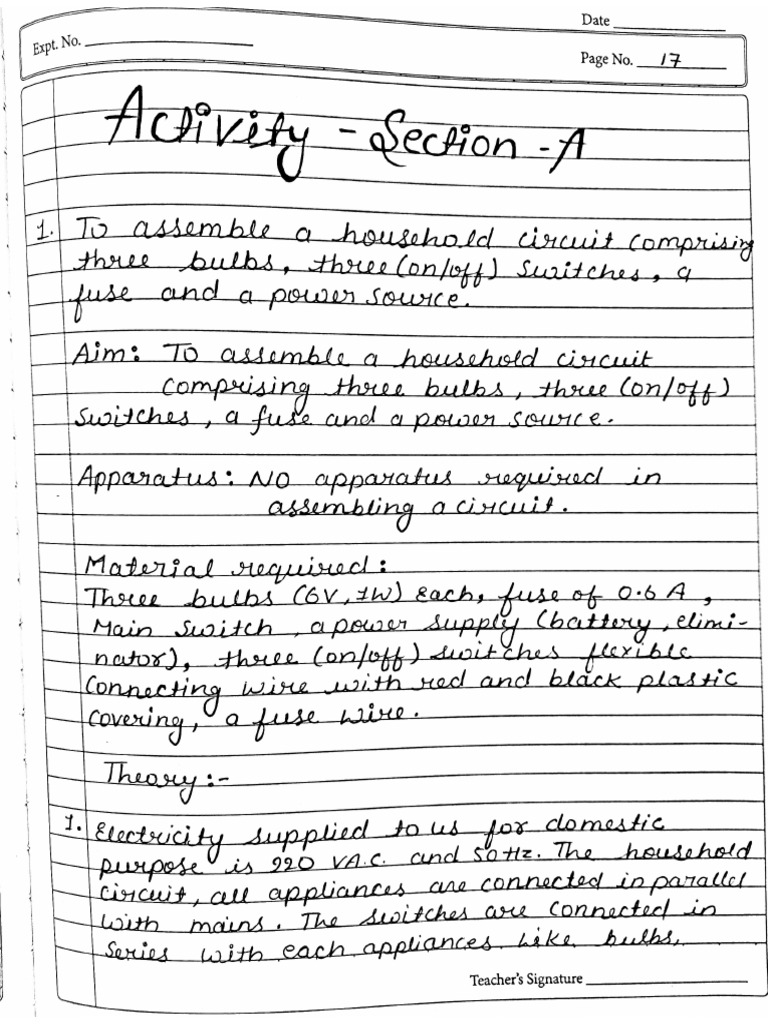 Date
Expt. No.
Page No. 17
Activity - Section - A
1. To assemble a household circuit comprising
three bulbs, three (on/off) switches, a
fuse and a power source.
Aim: To assemble a household circuit
comprising three bulbs, three (on/off)
switches, a fuse and a power source.
Apparatus: No apparatus required in
assembling a circuit.
Material required:
Three bulbs (6V, 1W) each, fuse of 0.6 A,
Main switch, a power supply (battery, elimi-
nator), three (on/off) switches flexible
connecting wire with red and black plastic
covering, a fuse wire.
Theory:-
1. Electricity supplied to us for domestic
purpose is 220 VA.C. and 50Hz. The household
circuit, all appliances are connected in parallel
with mains. The switches are connected in
series with each appliances like bulbs,
Teacher's Signature